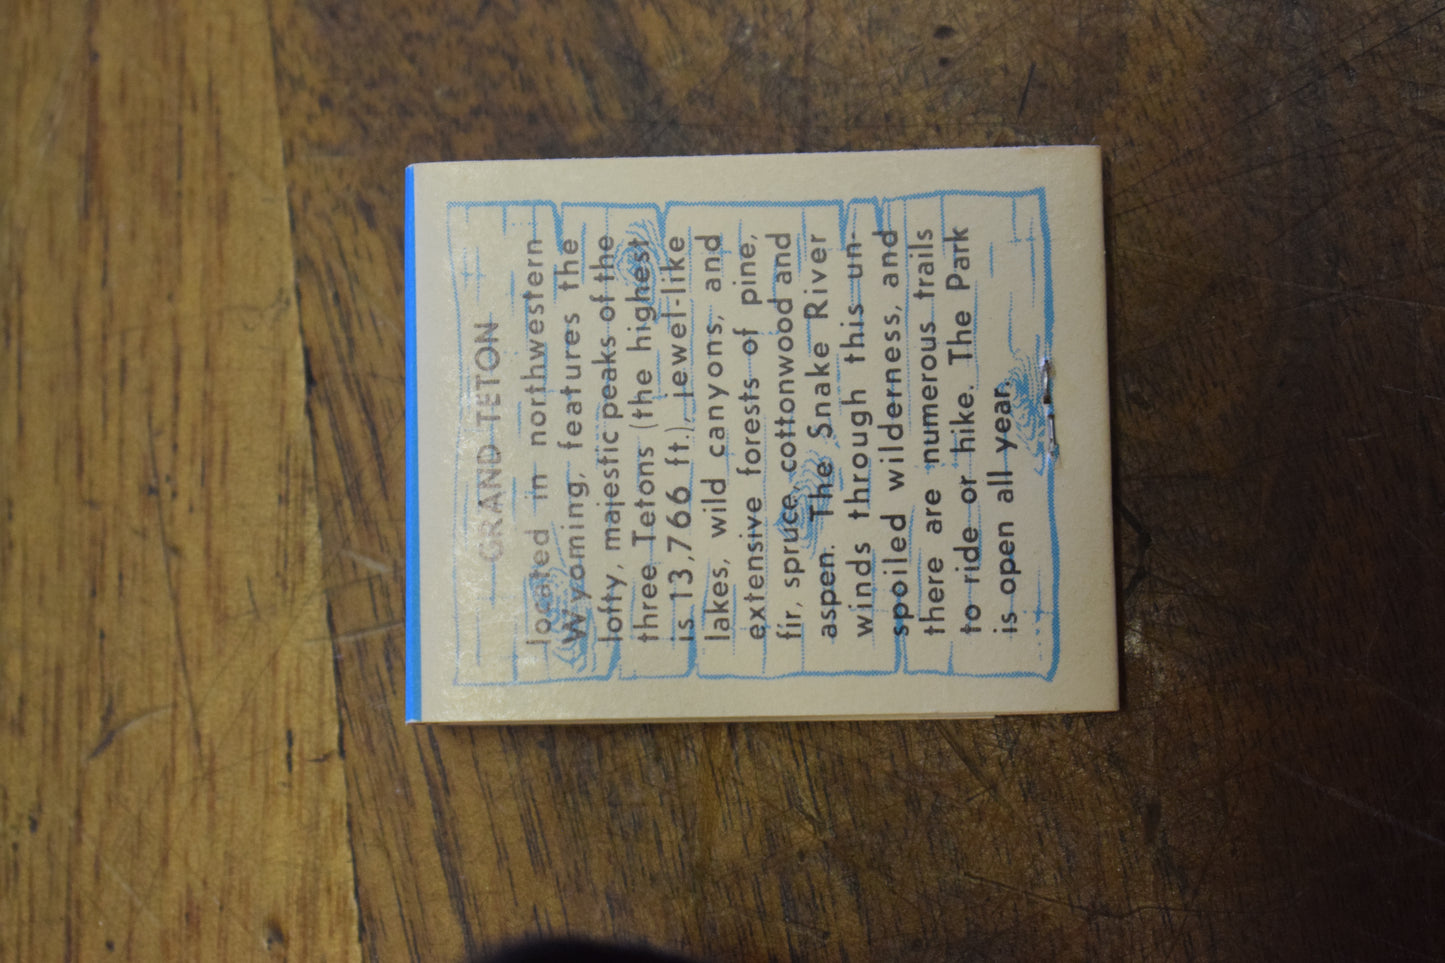 GRAND TETON
located in northwestern
Wyoming, features the
lofty, majestic peaks of the
three Tetons (the highest
is 13,766 ft.), jewel-like
lakes, wild canyons, and
extensive forests of pine,
fir, spruce, cottonwood and
aspen. The Snake River
winds through this un-
spoiled wilderness, and
there are numerous trails
to ride or hike. The Park
is open all year.